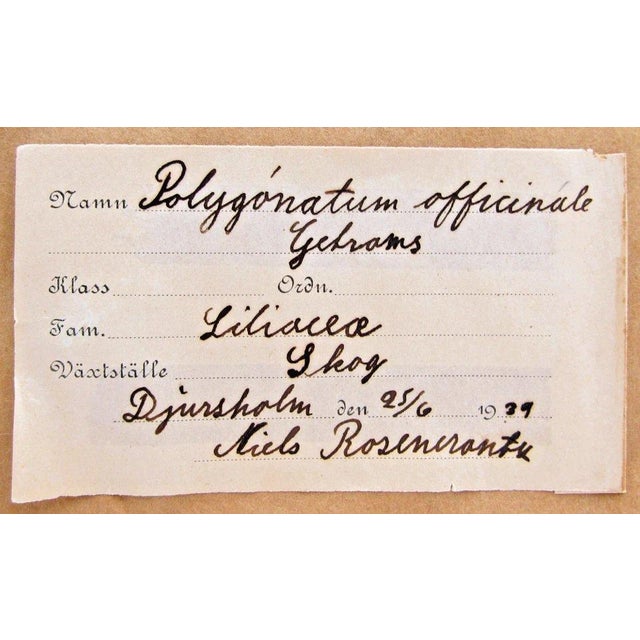 Namn Polygónatum officinále
Getrams
Klass Ordn.
Fam. Liliaceæ
Växtställe Skog
Djursholm den 25/6 1939
Niels Rosencrantz